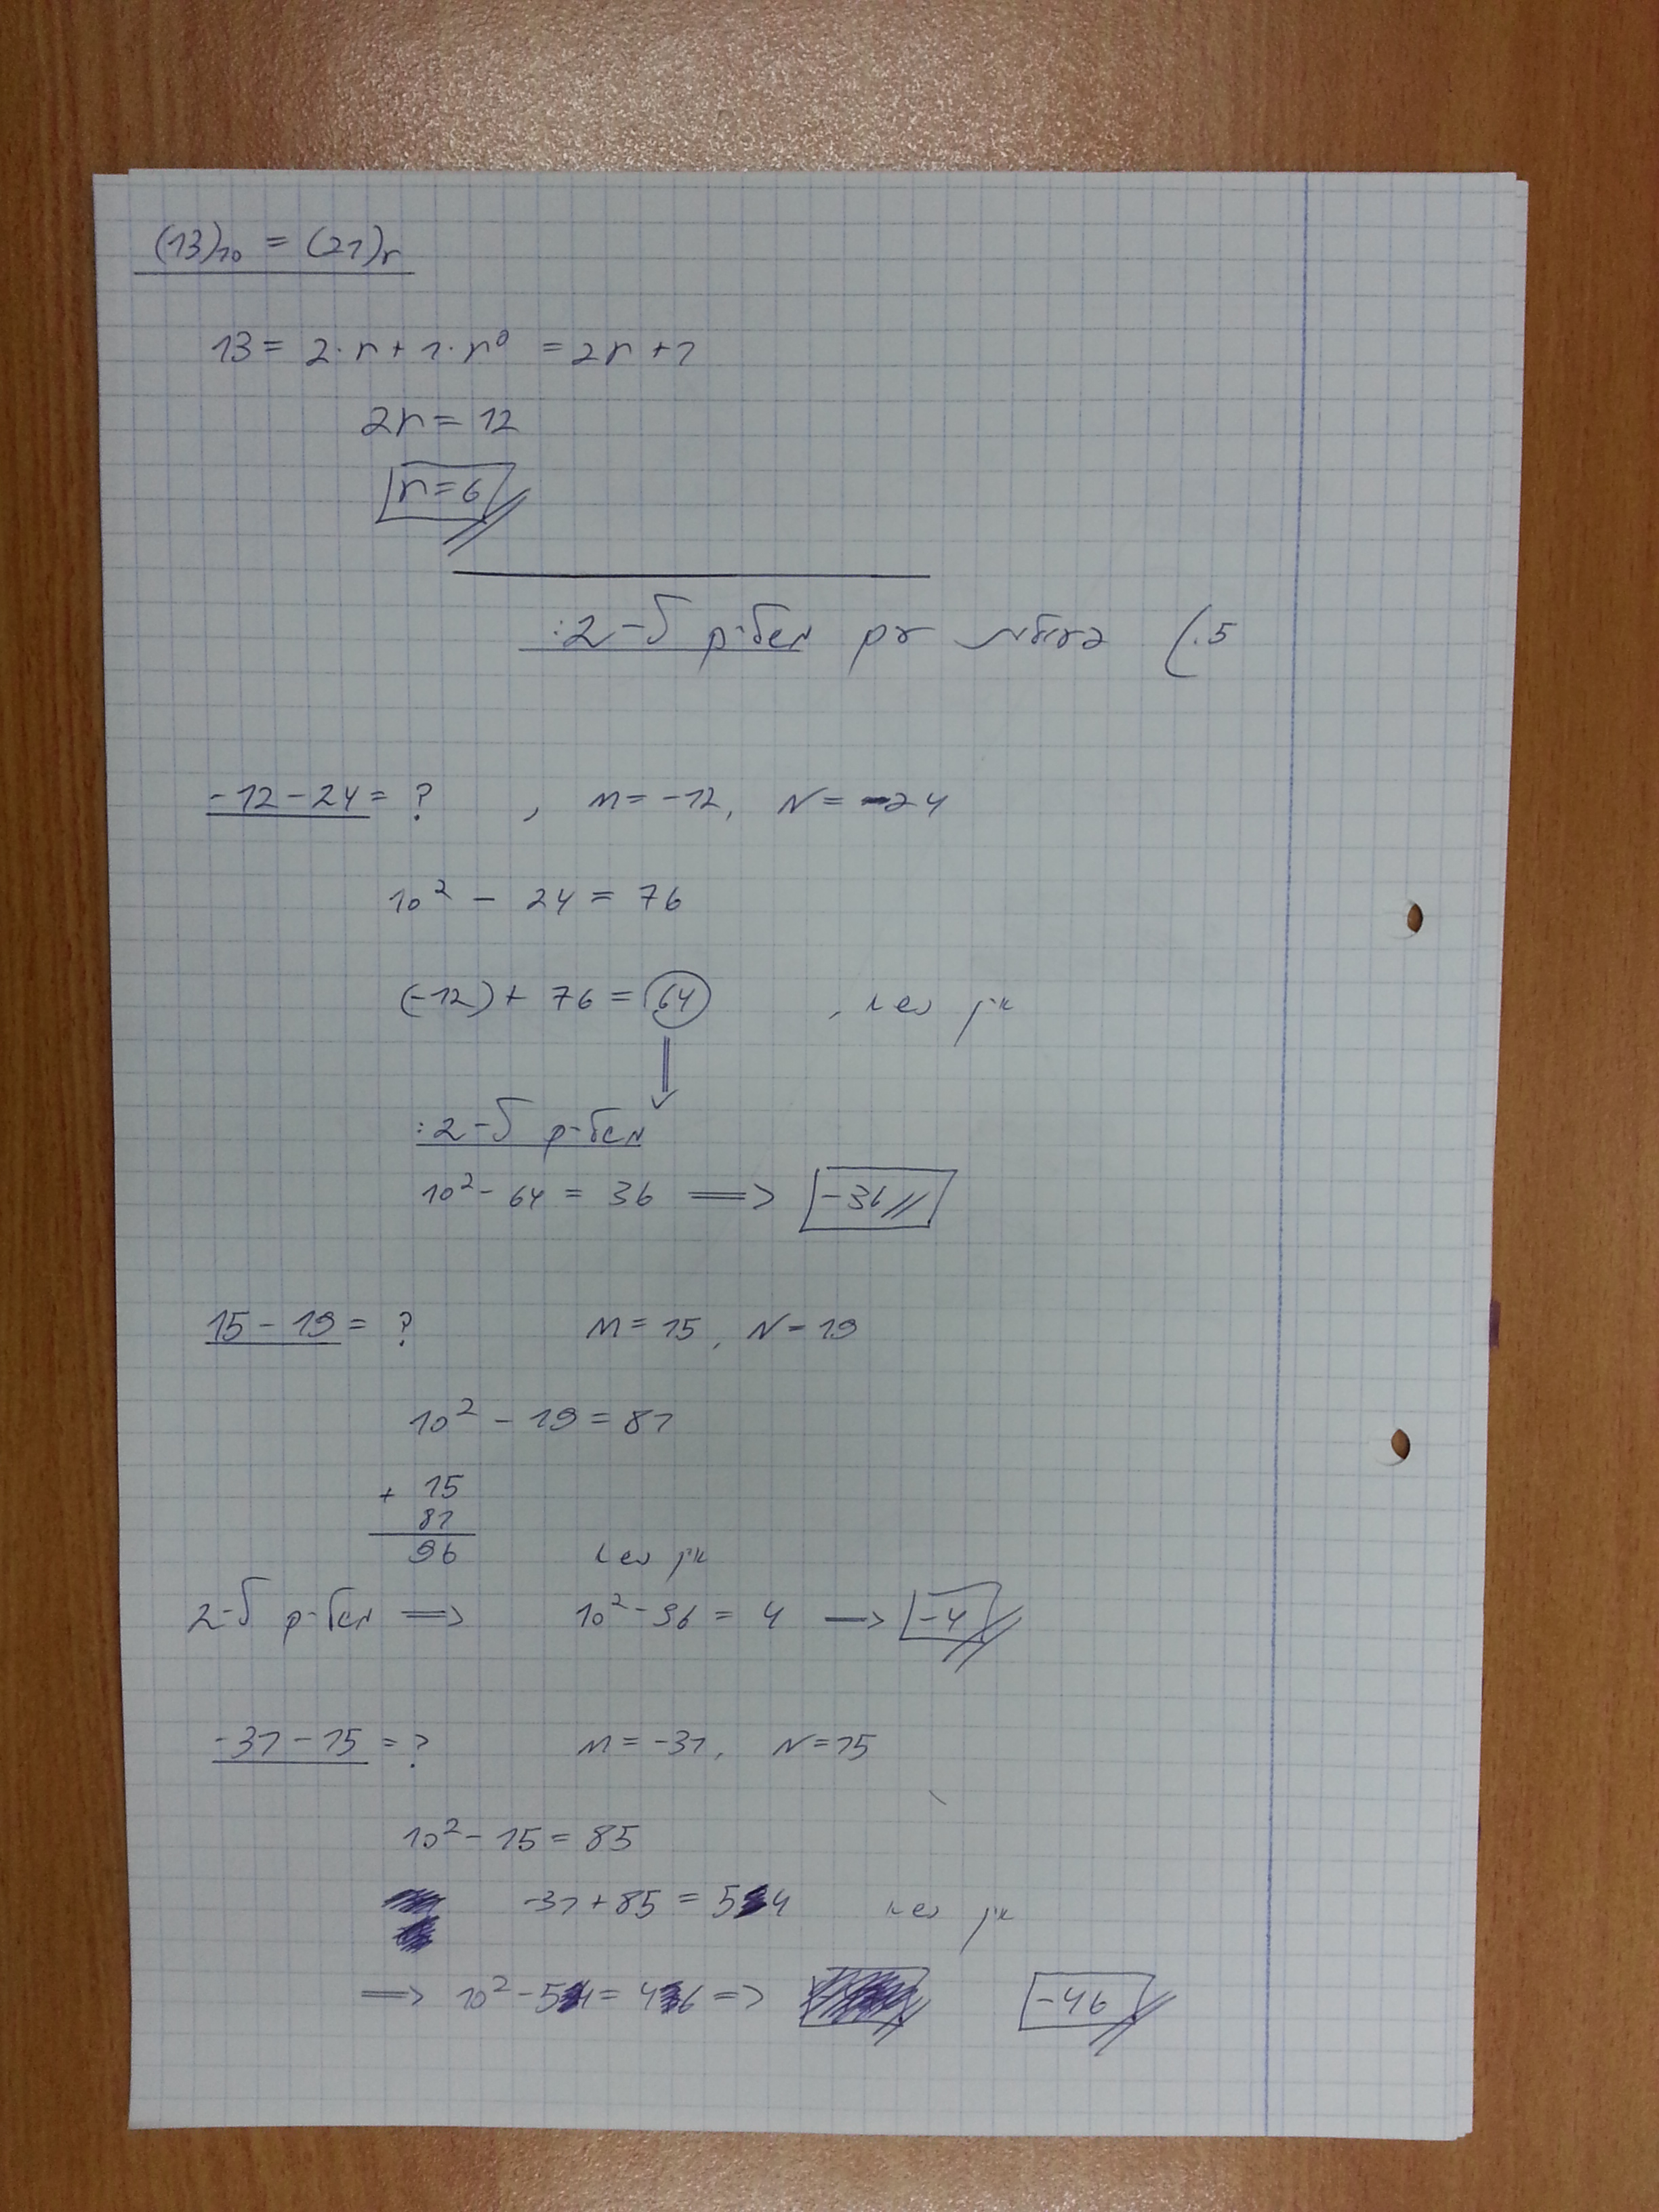 (13)₁₀ = (21)r
13 = 2·r + 1·r⁰ = 2r + 1
2r = 12
r = 6
5.) פעולות עם משלים ל-2:
-12 - 24 = ? , M = -12, N = 24
10² - 24 = 76
(-12) + 76 = 64 , אין נשא
משלים ל-2:
10² - 64 = 36 ⟹ -36
15 - 19 = ? M = 15, N = 19
10² - 19 = 81
+ 15
81
96 אין נשא
משלים ל-2 ⟹ 10² - 96 = 4 → -4
-31 - 15 = ? M = -31, N = 15
10² - 15 = 85
-31 + 85 = 54 אין נשא
⟹ 10² - 54 = 46 ⟹ -46